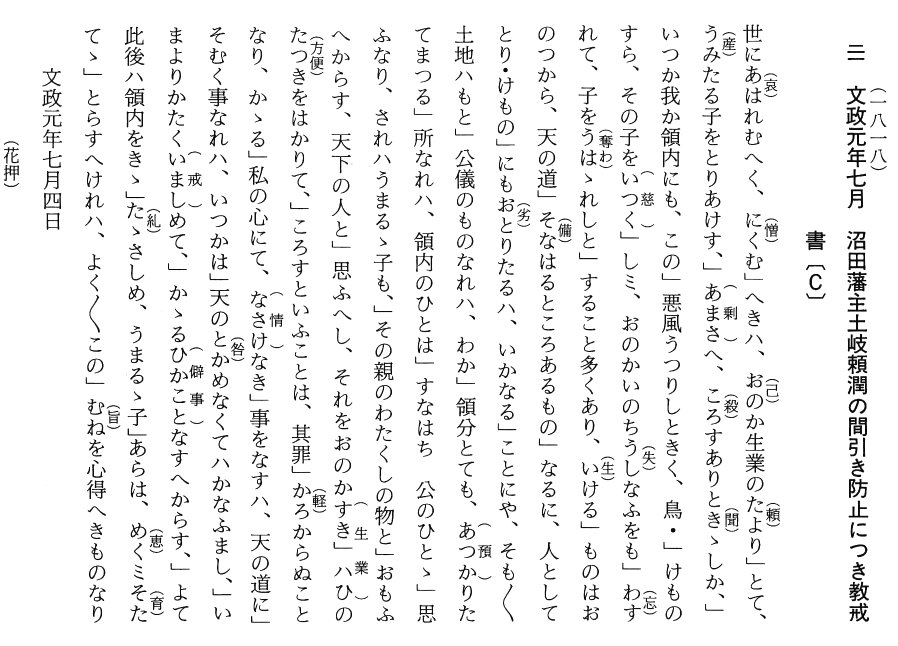 (一八一八)
三 文政元年七月 沼田藩主土岐頼潤の間引き防止につき教戒
書〔C〕
世にあはれ(哀)むへく、にくむ(憎)」へきハ、おの(己)か生業のたより(頼)」とて、
うみ(産)たる子をとりあけす、」あまさへ(剰)、ころす(殺)ありときゝ(聞)しか、」
いつか我か領内にも、この」悪風うつりしときく、鳥・」けもの
すら、その子をいつく(慈)」しミ、おのかいのちうしな(失)ふをも」わす(忘)
れて、子をうはゝ(奪わ)れしと」すること多くあり、いける(生)」ものはお
のつから、天の道」そなはる(備)ところあるもの」なるに、人として
とり・けもの」にもおとり(劣)たるハ、いかなる」ことにや、そも〱
土地ハもと」公儀のものなれハ、わか」領分とても、あつかり(預)た
てまつる」所なれハ、領内のひとは」すなはち 公のひとゝ」思
ふなり、されハうまるゝ子も、」その親のわたくしの物と」おもふ
へからす、天下の人と」思ふへし、それをおのかすき(生業)」ハひの
たつき(方便)をはかりて、」ころすといふことは、其罪」かろ(軽)からぬこと
なり、かゝる」私の心にて、なさけ(情)なき」事をなすハ、天の道に」
そむく事なれハ、いつかは」天のとかめ(咎)なくてハかなふまし、」い
まよりかたくいましめ(戒)て、」かゝるひかこと(僻事)なすへからす、」よて
此後ハ領内をきゝ」たゝさ(糺)しめ、うまるゝ子」あらは、めくミ(恵)そた(育)
てゝ」とらすへけれハ、よく〱この」むね(旨)を心得へきものなり
文政元年七月四日
(花押)